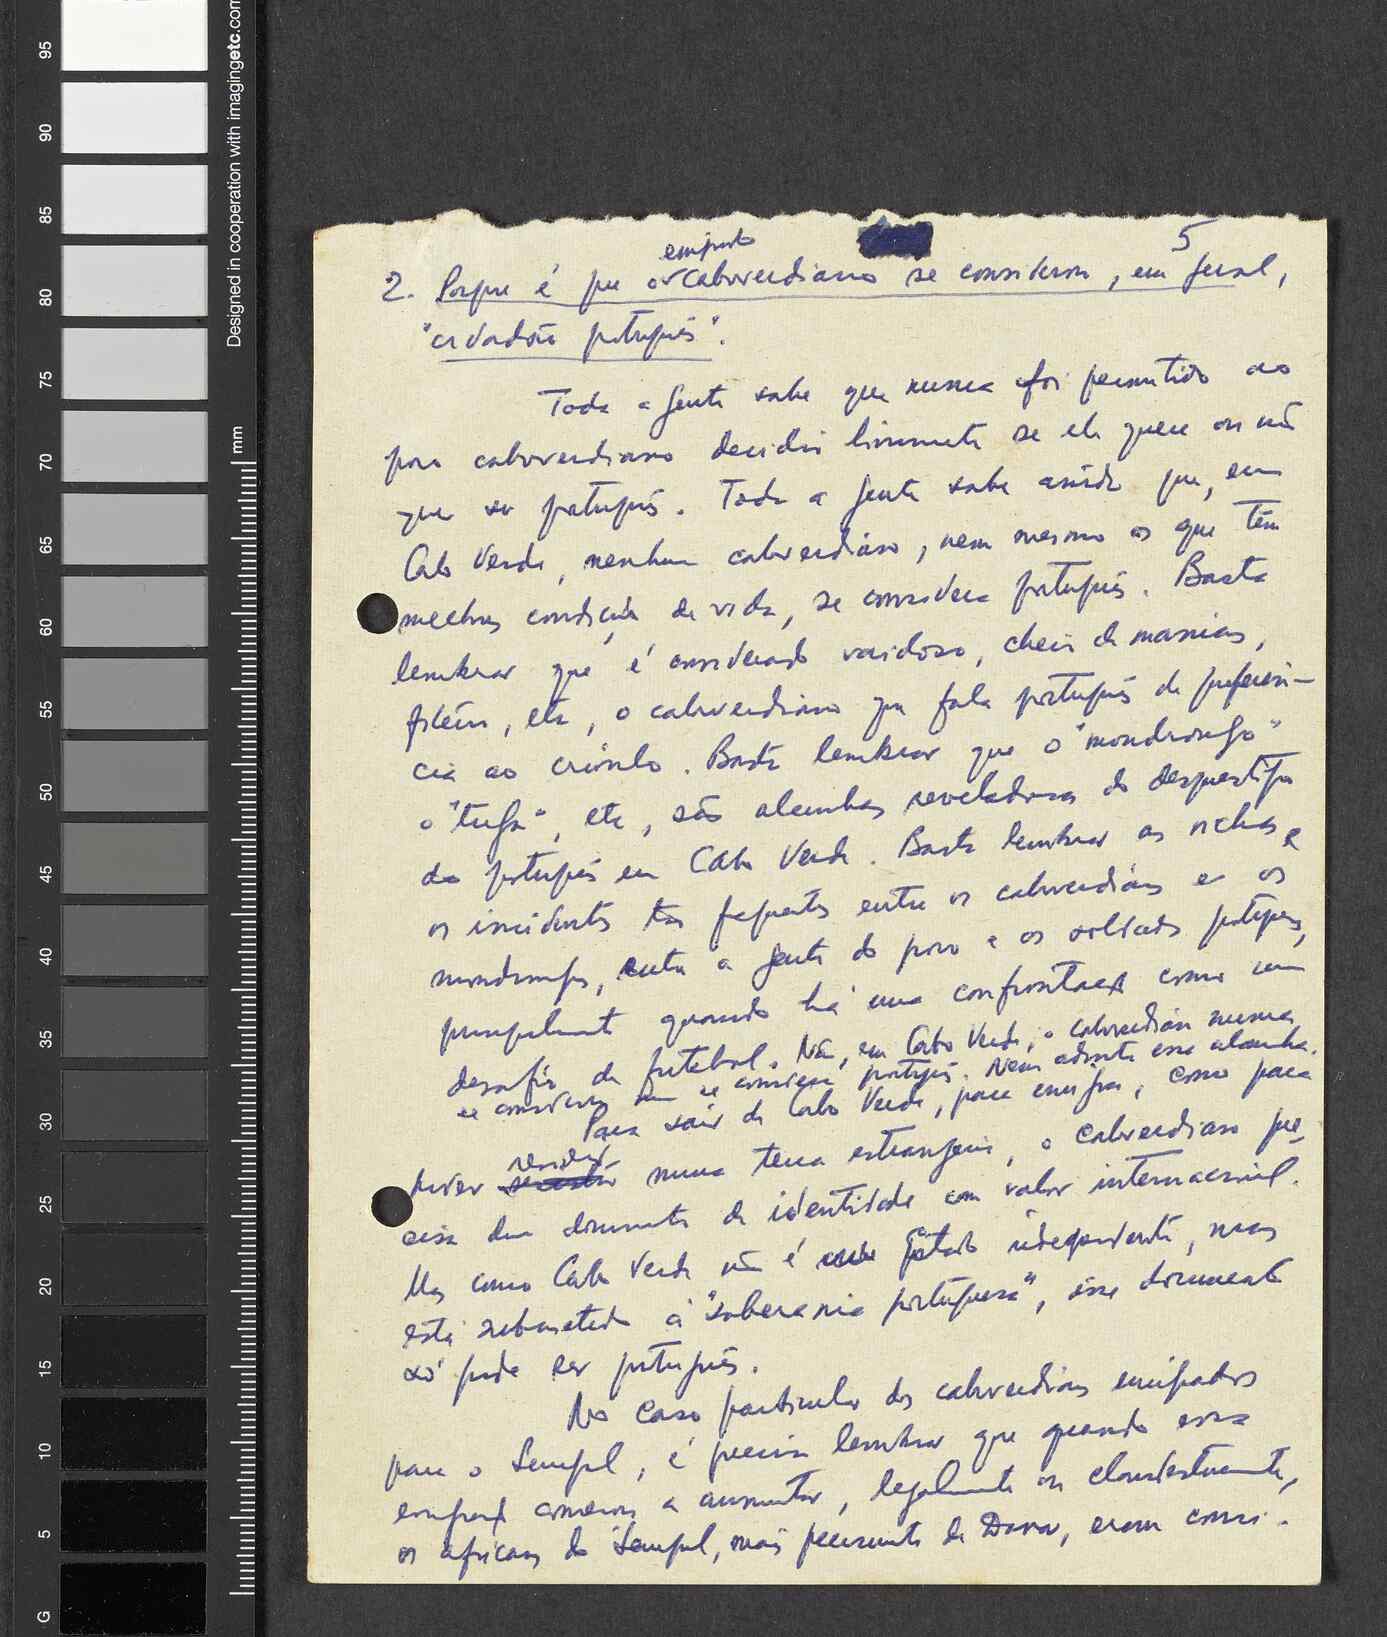 5
2. Porque é que o emigrado caboverdiano se considera, em geral,
"cidadão português".
Toda a gente sabe que nunca foi permitido ao
povo caboverdiano decidir livremente se ele quere ou não
quer ser português. Toda a gente sabe ainda que, em
Cabo Verde, nenhum caboverdiano, nem mesmo os que têm
melhores condições de vida, se considera português. Basta
lembrar que é considerado vaidoso, cheio de manias,
etc, o caboverdiano que fala português de preferên-
cia ao crioulo. Basta lembrar que o "mondrongo"
o "tuga", etc, são alcunhas reveladoras do desprestígio
do português em Cabo Verde. Basta lembrar as richas e
os incidentes tão frequentes entre os caboverdianos e os
mondrongos, entre a gente do povo e os soldados portugueses,
principalmente quando há uma confrontação como um
desafio de futebol. Não, em Cabo Verde, o caboverdiano nunca
se considerou nem se considera português. Nem adianta essa alcunha.
Para sair de Cabo Verde, para emigrar, como para
viver residir numa terra estrangeira, o caboverdiano pre-
cisa dum documento de identidade com valor internacional.
Mas como Cabo Verde não é Estado independente, mas
está submetido à "soberania portuguesa", esse documento
só pode ser português.
No caso particular dos caboverdianos emigrados
para o Senegal, é preciso lembrar que quando essa
emigração começou a aumentar, legalmente ou clandestinamente,
os africanos do Senegal, mais precisamente de Dakar, eram consi-
Designed in cooperation with imagingetc.com
mm
95
90
85
80
75
70
65
60
55
50
45
40
35
30
25
20
15
10
5
G